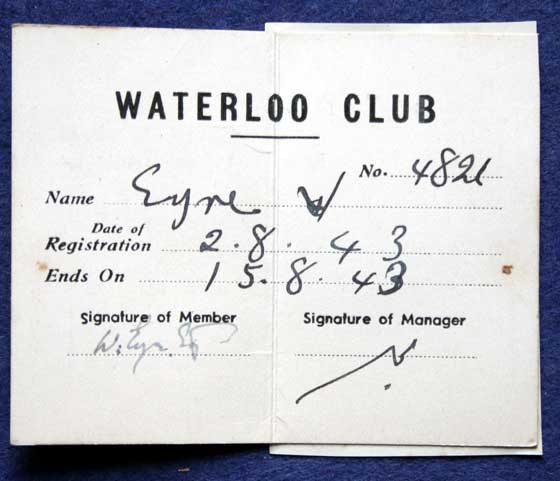 WATERLOO CLUB
No. 4821
Name Eyre W
Date of Registration 2.8.43
Ends On 15.8.43
Signature of Member Signature of Manager
W. Eyre.